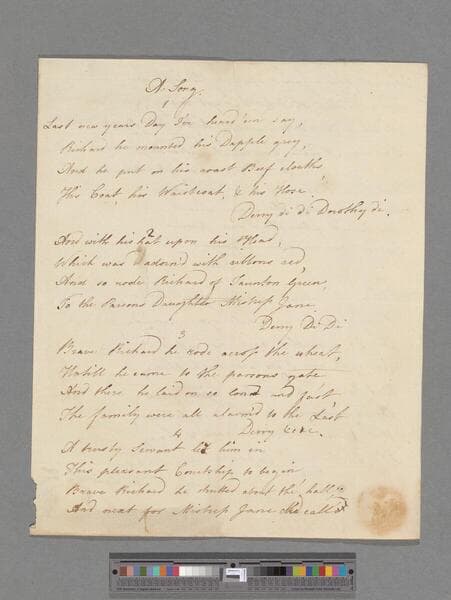 A Song.
1
Last new years Day I've heard 'em say,
Richard he mounted his Dapple grey,
And he put on his roast Beef cloaths,
His Coat, his Waistcoat, & his Hose.
Derry di di Dorothy di.
And with his hat upon his Head,
Which was adorn'd with ribbons red,
And so rode Richard of Taunton Green,
To the Parsons Daughter Mistress Jane.
Derry Di Di
3
Brave Richard he rode across the wheat,
Untill he came to the parsons gate
And there he laid on so loud and fast
The family were all alarm'd to the Last
4
Derry &c &c.
A trusty Servant let him in
This pleasant Courtship to begin
Brave Richard he strutted about the hall
And next for Mistress Jane he call'd